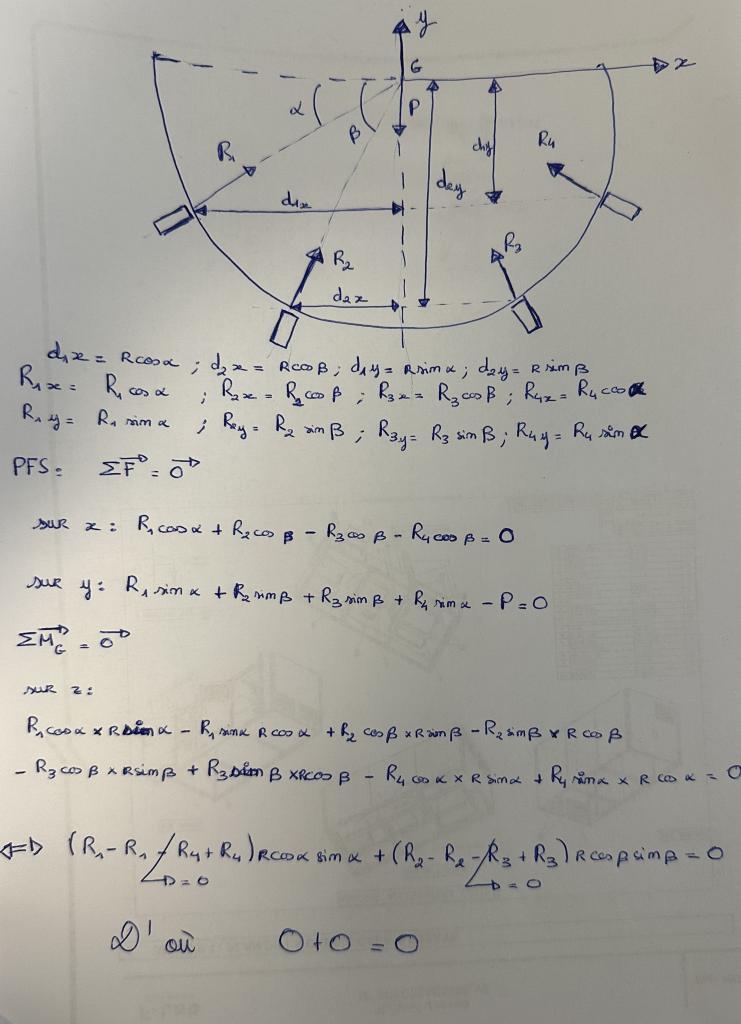 y
G
x
α
β
P
R₁
d₁y
R₄
d₂y
d₁x
R₂
R₃
d₂x
d₁x = Rcosα ; d₂x = Rcosβ ; d₁y = Rsinα ; d₂y = Rsinβ
R₁x = R₁cosα ; R₂x = R₂cosβ ; R₃x = R₃cosβ ; R₄x = R₄cosα
R₁y = R₁ sinα ; R₂y = R₂ sinβ ; R₃y = R₃ sinβ ; R₄y = R₄ sinα
PFS : ΣF⃗ = 0⃗
sur x : R₁cosα + R₂cosβ - R₃cosβ - R₄cosβ = 0
sur y : R₁sinα + R₂sinβ + R₃sinβ + R₄sinα - P = 0
ΣM⃗_G = 0⃗
sur z :
R₁cosα × Rsinα - R₁sinα Rcosα + R₂cosβ × Rsinβ - R₂sinβ × Rcosβ
- R₃cosβ × Rsinβ + R₃sinβ × Rcosβ - R₄cosα × Rsinα + R₄sinα × Rcosα = 0
⇔ (R₁ - R₁ - R₄ + R₄) Rcosα sinα + (R₂ - R₂ - R₃ + R₃) Rcosβ sinβ = 0
= 0 = 0
D'où 0 + 0 = 0